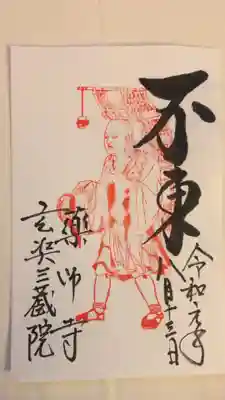 不東
令和元年
八月十三日
藥師寺
玄奘三蔵院